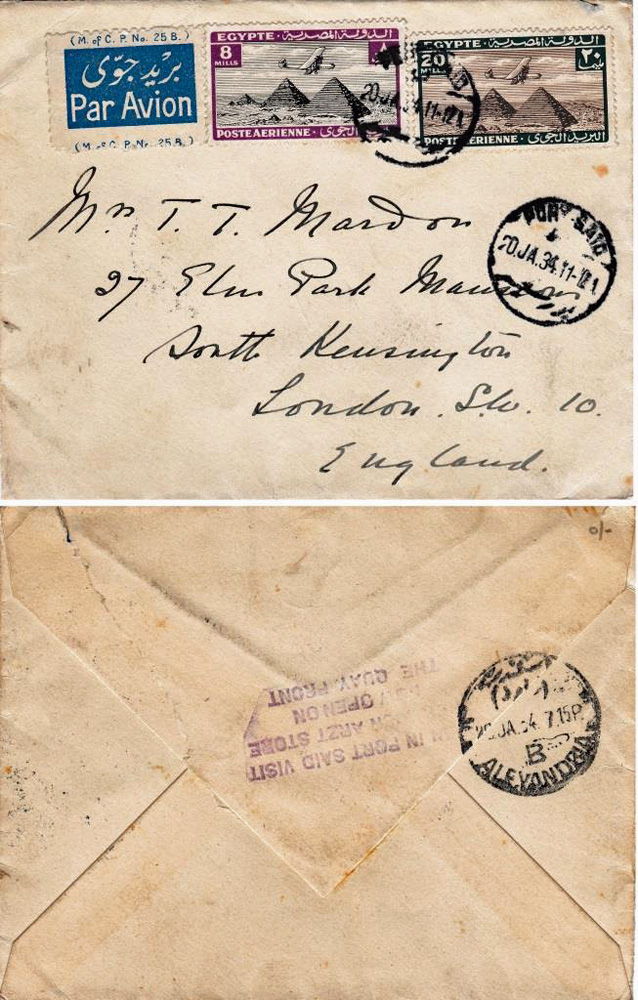 (M. of C. P. No. 25 B.)
بريد جوّى
Par Avion
(M. of C. P. No. 25 B.)
EGYPTE الدولة المصرية
8
MILLS
٨
POSTE AERIENNE البريد الجوى
EGYPTE الدولة المصرية
20
MILLS
٢٠
POSTE AERIENNE البريد الجوى
20.JA.34.11-12
PORT SAID
20.JA.34.11-12
T. T. Mardon
27 Elm Park Mansions
South Kensington
London. S.W. 10.
England.
o/-
IN PORT SAID VISIT
ARZT STORE
OPEN ON
THE QUAY FRONT
20.JA.34.7.15P
B
ALEXANDRIA